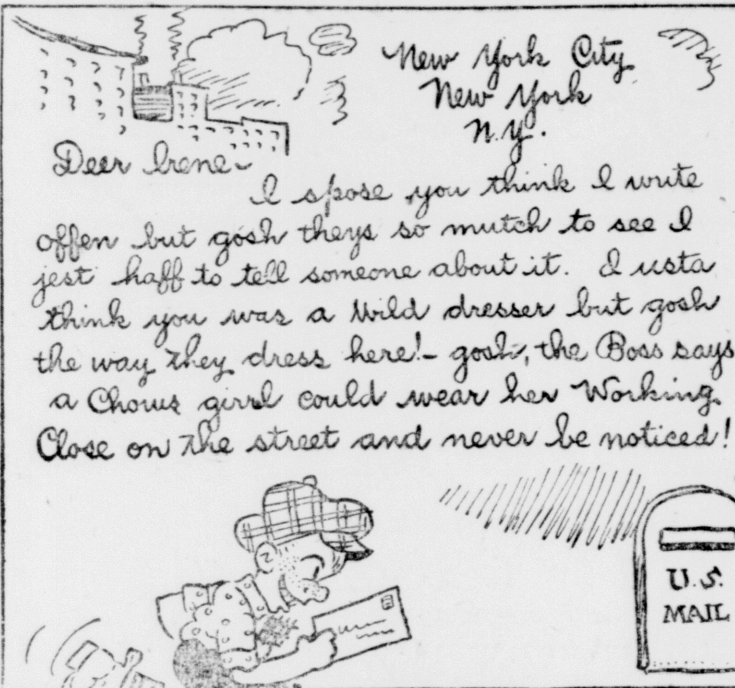 New York City
New York
N.Y.
Deer Irene~
I spose you think I write
offen but gosh theys so mutch to see I
jest haff to tell someone about it. I usta
think you was a Wild dresser but gosh
the way they dress here!- gosh, the Boss says
a Chorus girrl could wear her Working
Close on the street and never be noticed!
U.S.
MAIL